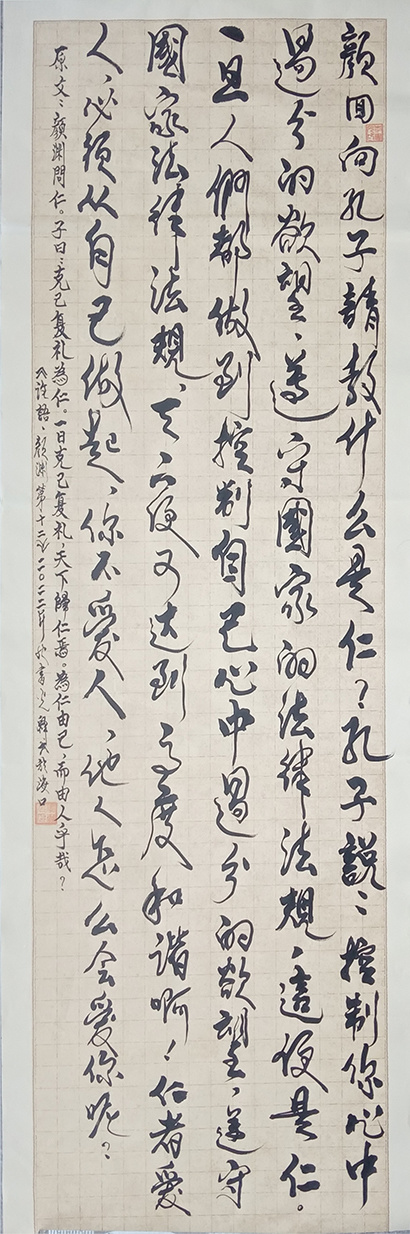 颜回向孔子請教什么是仁？孔子説：控制你心中
過分的欲望，遵守國家的法律法規，這便是仁。
一旦人們都做到控制自己心中過分的欲望，遵守
國家法律法規，天下便可达到高度和谐啊！仁者爱
人，必须从自己做起，你不爱人，他人怎么会爱你呢？
原文：颜渊問仁。子曰：克己复礼為仁。一日克己复礼，天下歸仁焉。為仁由己，而由人乎哉？
論語，颜渊第十二 二〇二二年 於海口